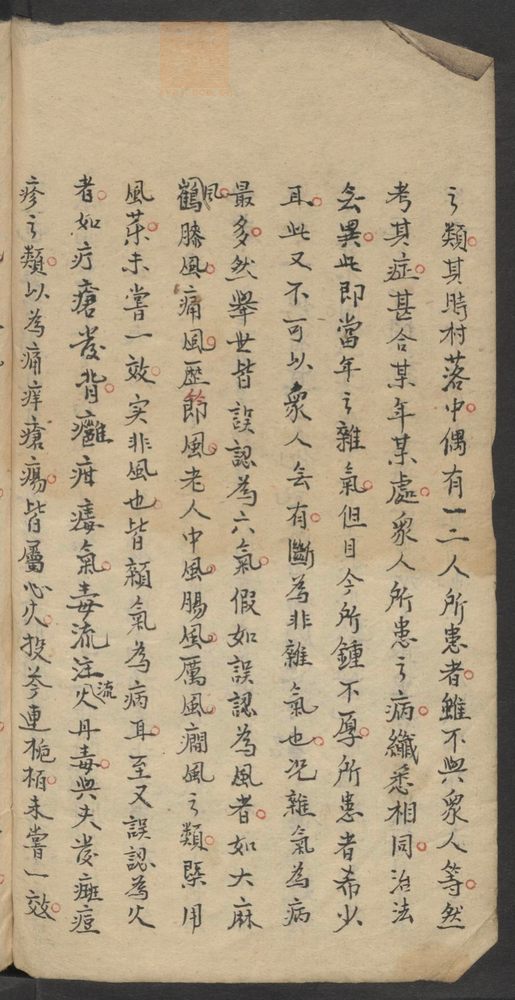 之類其時村落中偶有一二人所患者雖不與衆人等然
考其症甚合某年某處衆人所患之病纖悉相同治法
無異此即當年之雜氣但目今所鍾不厚所患者希少
耳此又不可以衆人無有斷為非雜氣也况雜氣為病
最多然舉世皆誤認為六氣假如誤認為風者如大麻
風鶴膝風痛風歷節風老人中風腸風厲風癇風之類槩用
風藥未嘗一效实非風也皆雜氣為病耳至又誤認為火
者如疔瘡發背癰疽痿氣毒流注流火丹毒與夫發斑痘
疹之類以為痛痒瘡瘍皆屬心火投芩連梔栢未嘗一效